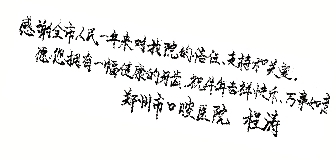 感谢全市人民一年来对我院的信任、支持和关爱。
愿您拥有一幅健康的牙齿，祝伴年吉祥快乐、万事如意
郑州市口腔医院 程涛